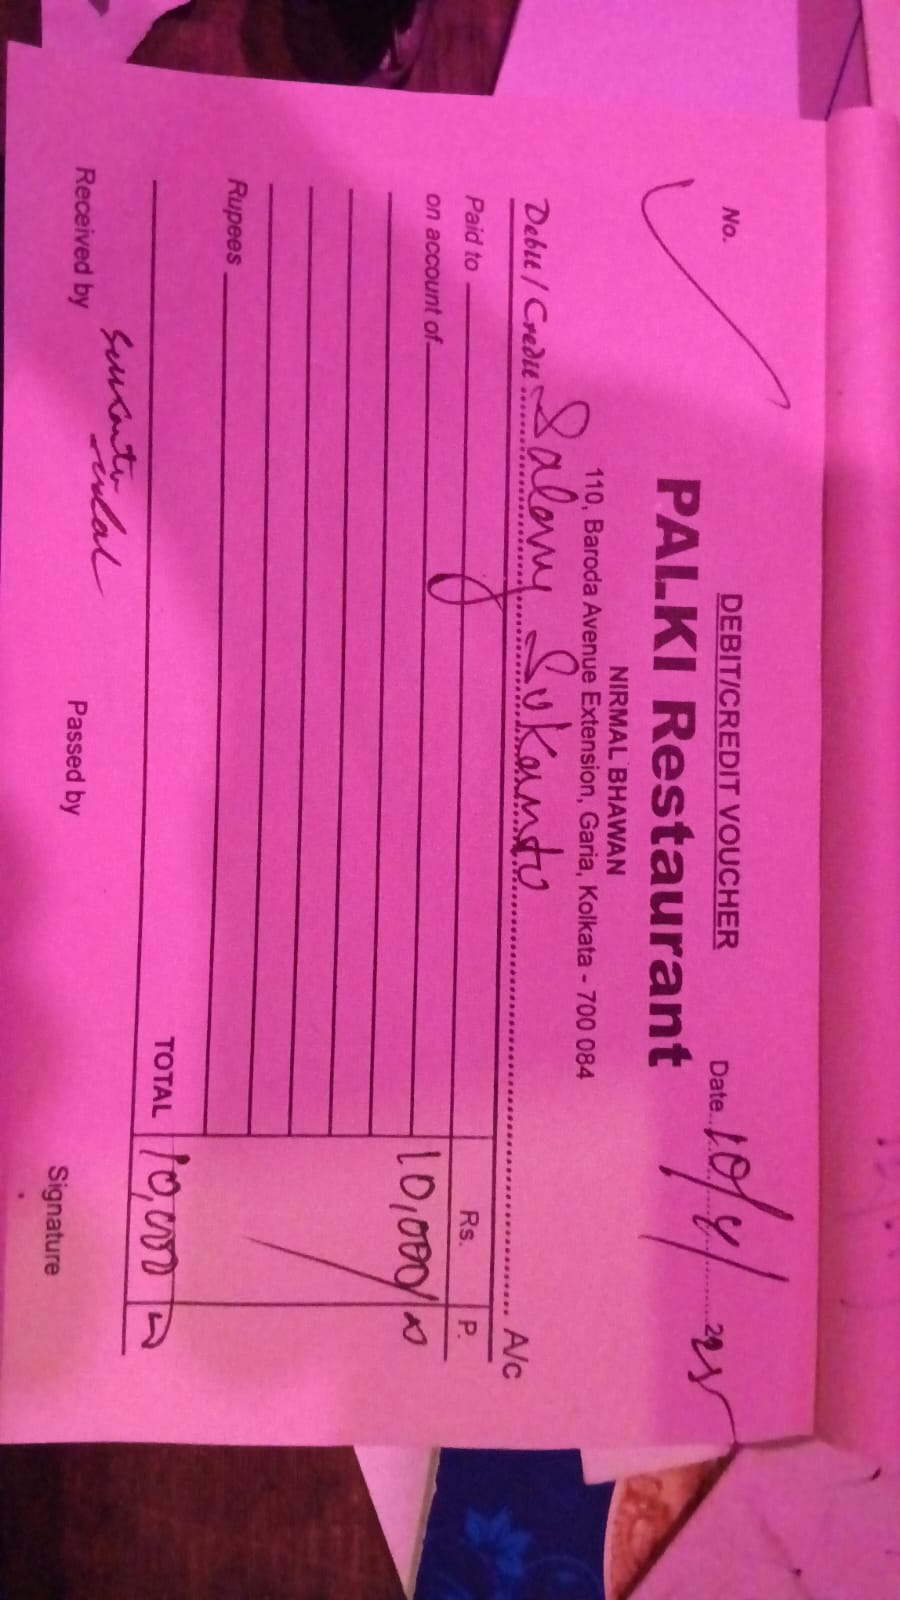 DEBIT/CREDIT VOUCHER
No. Date 10/4/2025
PALKI Restaurant
NIRMAL BHAWAN
110, Baroda Avenue Extension, Garia, Kolkata - 700 084
Debit / Credit Salary Sukanta A/c
Paid to Rs. P.
on account of 10,000/
Rupees
TOTAL 10,000
Received by Sukanta Passed by Signature